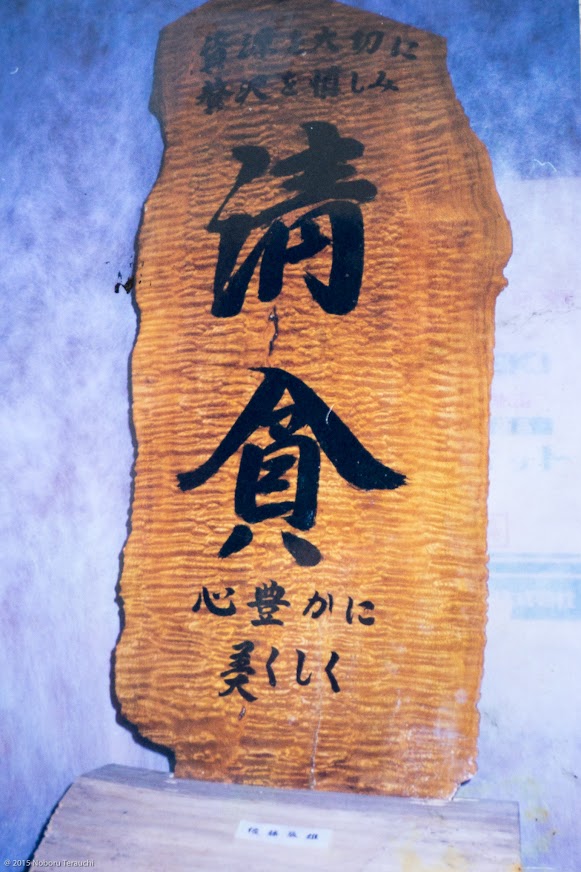 資源を大切に
贅沢を惜しみ
清
貧
心豊かに
美しく
@ 2015 Noboru Terauchi